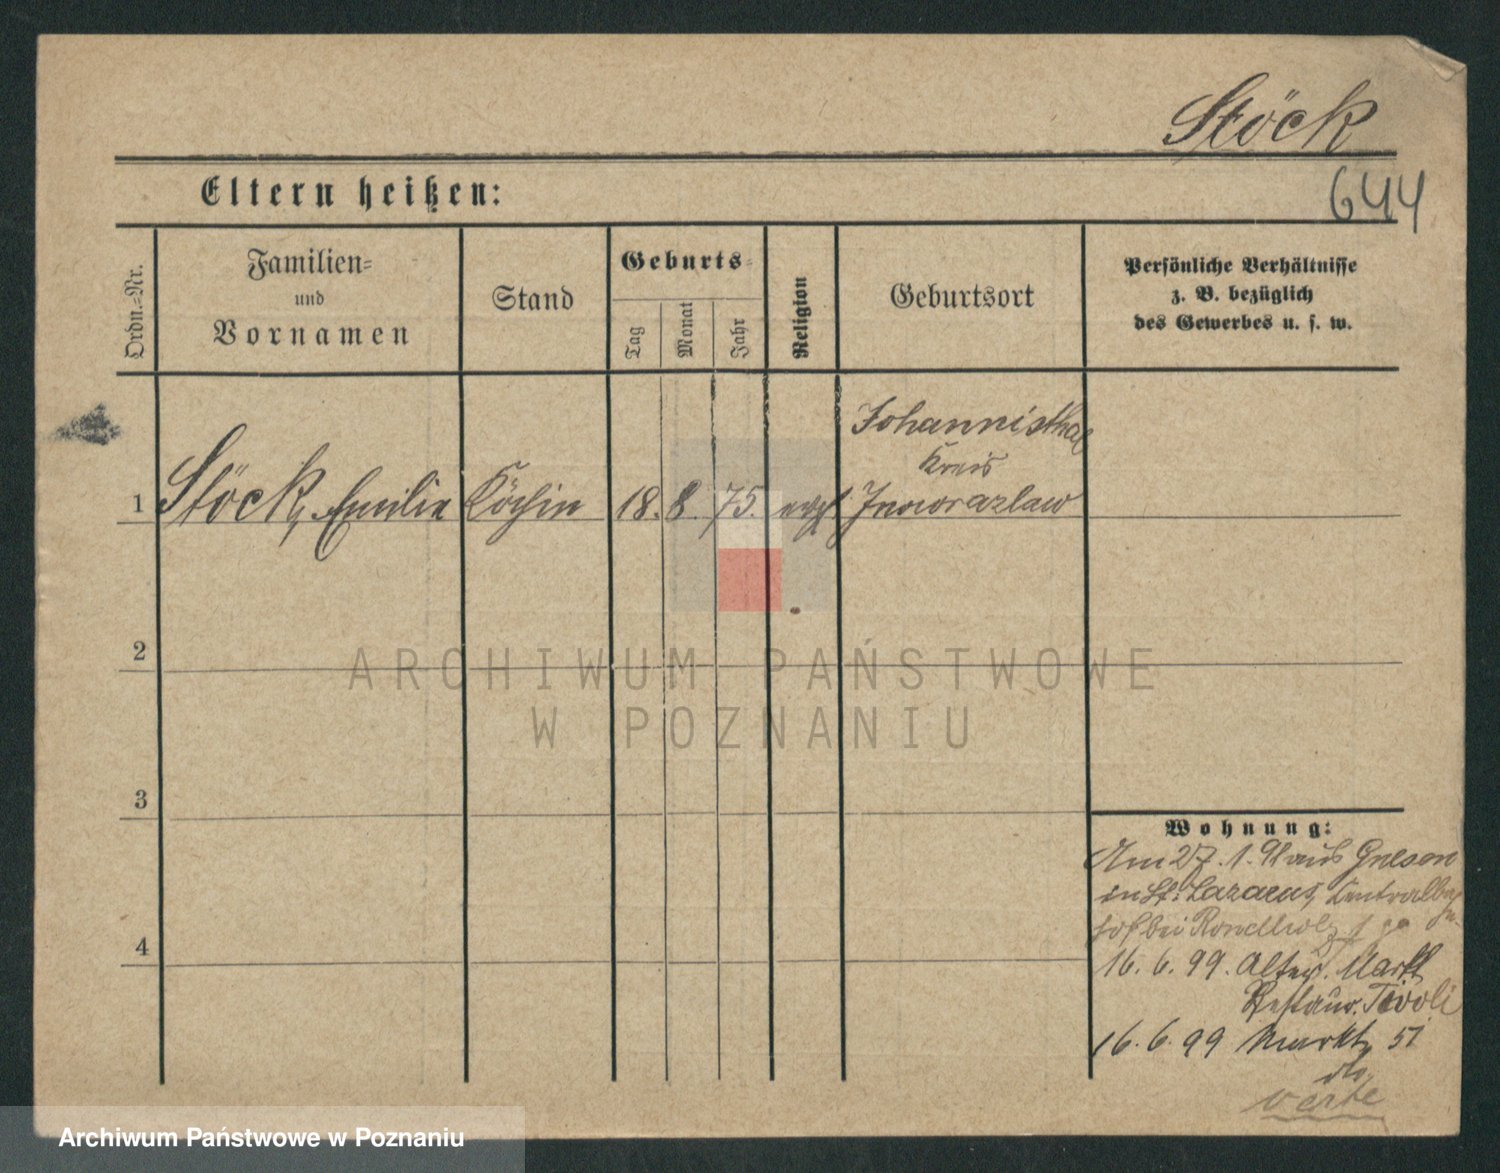 Stöck
644
Eltern heißen:
Ordn.-Nr.
Familien-
und
Vornamen
Stand
Geburts-
Tag
Monat
Jahr
Religion
Geburtsort
Persönliche Verhältnisse
z. B. bezüglich
des Gewerbes u. s. w.
Johannisthal
Kreis
1 Stöck, Emilie Köchin 18. 8. 75. evgl Inowrazlaw
2
3
4
Wohnung:
Am 27. 1. aus Gnesen
in St. Lazarus, Centralbahn
hof bei
16. 6. 99. Alter Markt
Restaur. Tivoli
16. 6. 99 Markt 51
dto.
verte
ARCHIWUM PAŃSTWOWE
W POZNANIU
Archiwum Państwowe w Poznaniu